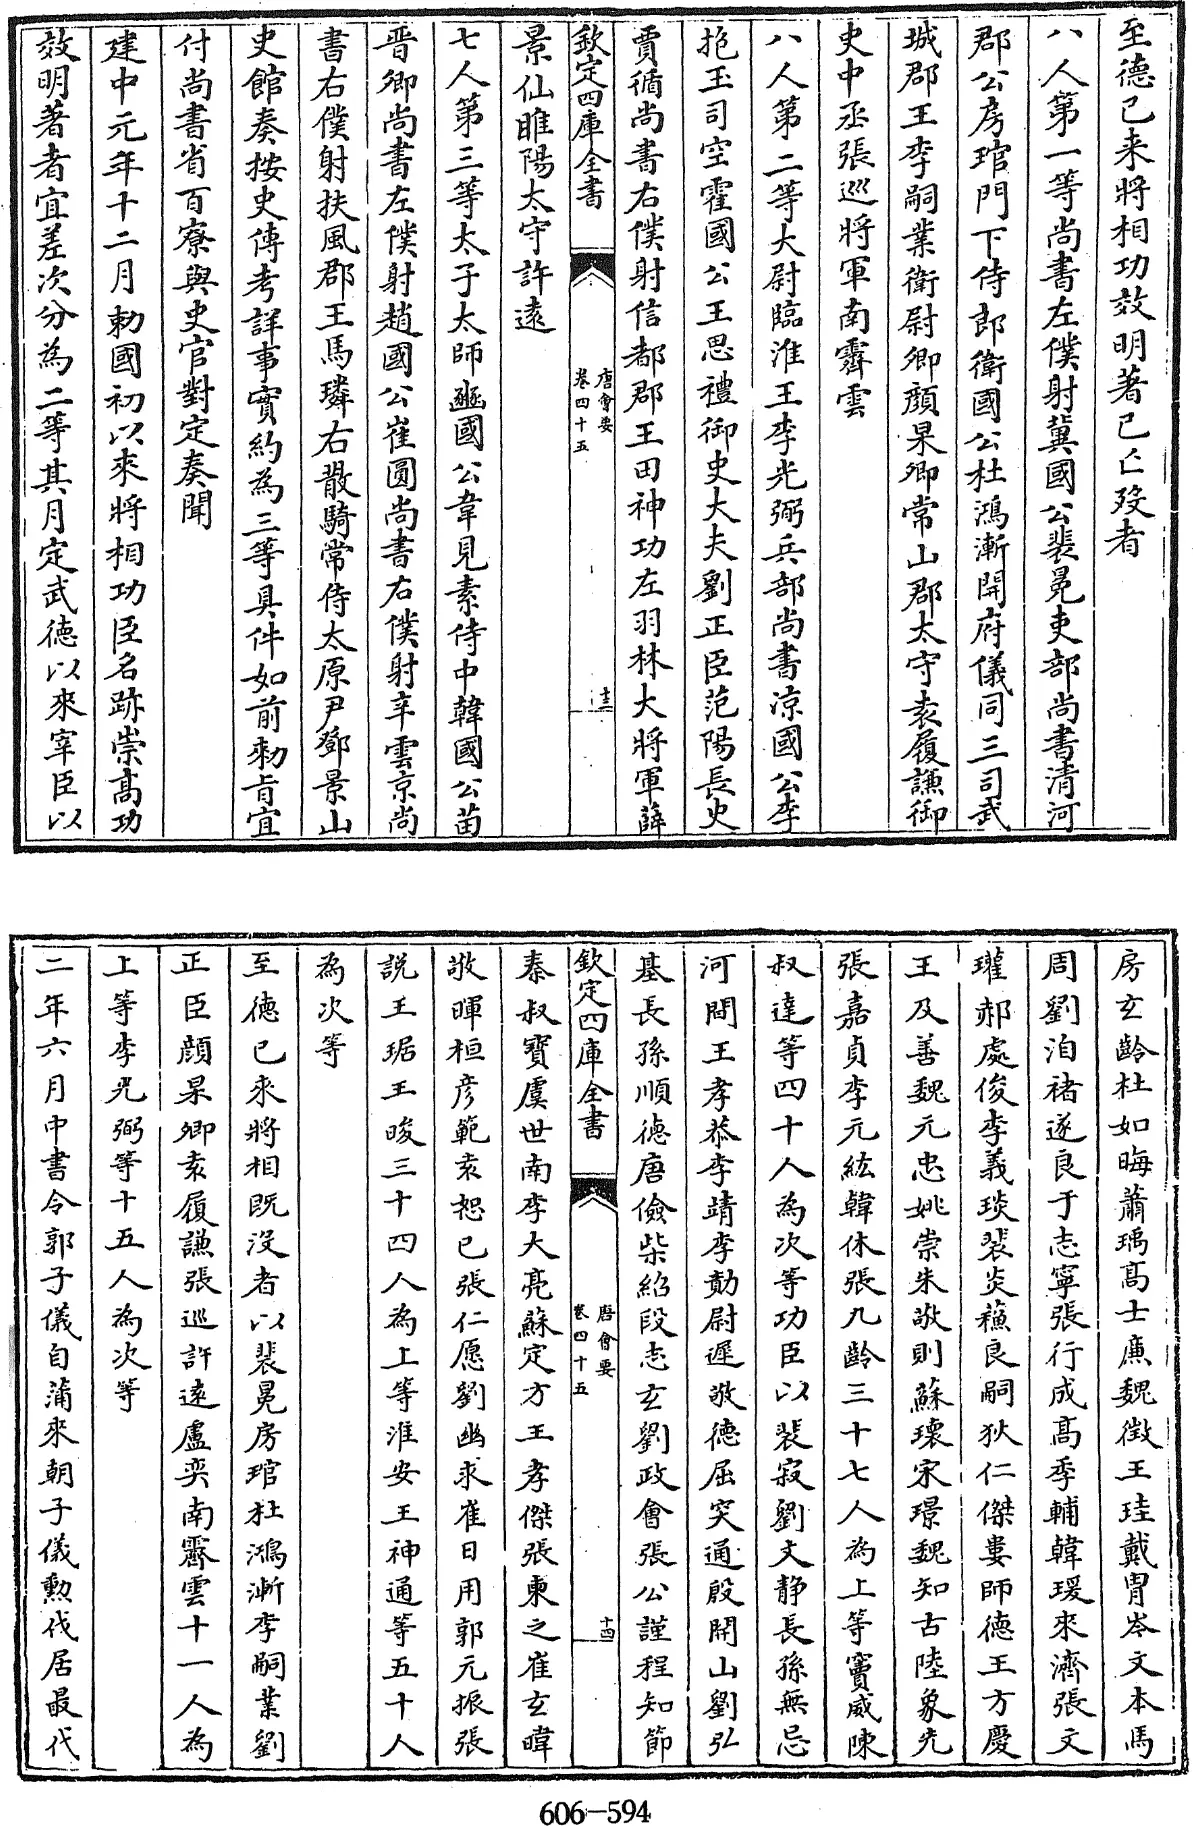 至德已来將相功效明著已亡歿者
八人第一等尚書左僕射冀國公裴冕吏部尚書清河
郡公房琯門下侍郎衛國公杜鴻漸開府儀同三司武
城郡王李嗣業衛尉卿顔杲卿常山郡太守袁履謙御
史中丞張巡將軍南霽雲
八人第二等大尉臨淮王李光弼兵部尚書凉國公李
抱玉司空霍國公王思禮御史大夫劉正臣范陽長史
賈循尚書右僕射信都郡王田神功左羽林大將軍薛
欽定四庫全書
唐會要
卷四十五
十三
景仙睢陽太守許遠
七人第三等太子太師豳國公韋見素侍中韓國公苗
晋卿尚書左僕射趙國公崔圓尚書右僕射辛雲京尚
書右僕射扶風郡王馬璘右散騎常侍太原尹鄧景山
史館奏按史傳考詳事實約為三等具件如前勅旨宜
付尚書省百寮與史官對定奏聞
建中元年十二月勅國初以來將相功臣名跡崇高功
效明著者宜差次分為二等其月定武德以來宰臣以
房玄齡杜如晦蕭瑀高士廉魏徵王珪戴胄岑文本馬
周劉洎褚遂良于志寧張行成高季輔韓瑗來濟張文
瓘郝處俊李義琰裴炎蘓良嗣狄仁傑婁師德王方慶
王及善魏元忠姚崇朱敬則蘇瓌宋璟魏知古陸象先
張嘉貞李元紘韓休張九齡三十七人為上等竇威陳
叔達等四十人為次等功臣以裴寂劉文静長孫無忌
河間王孝恭李靖李勣尉遲敬德屈突通殷開山劉弘
基長孫順德唐儉柴紹段志玄劉政會張公謹程知節
欽定四庫全書
唐會要
卷四十五
十四
秦叔寶虞世南李大亮蘇定方王孝傑張柬之崔玄暐
敬暉桓彦範袁恕已張仁愿劉幽求崔日用郭元振張
説王琚王晙三十四人為上等淮安王神通等五十人
為次等
至德已來將相既没者以裴冕房琯杜鴻漸李嗣業劉
正臣顔杲卿袁履謙張巡許遠盧奕南霽雲十一人為
上等李光弼等十五人為次等
二年六月中書令郭子儀自蒲來朝子儀勲伐居最代
606-594